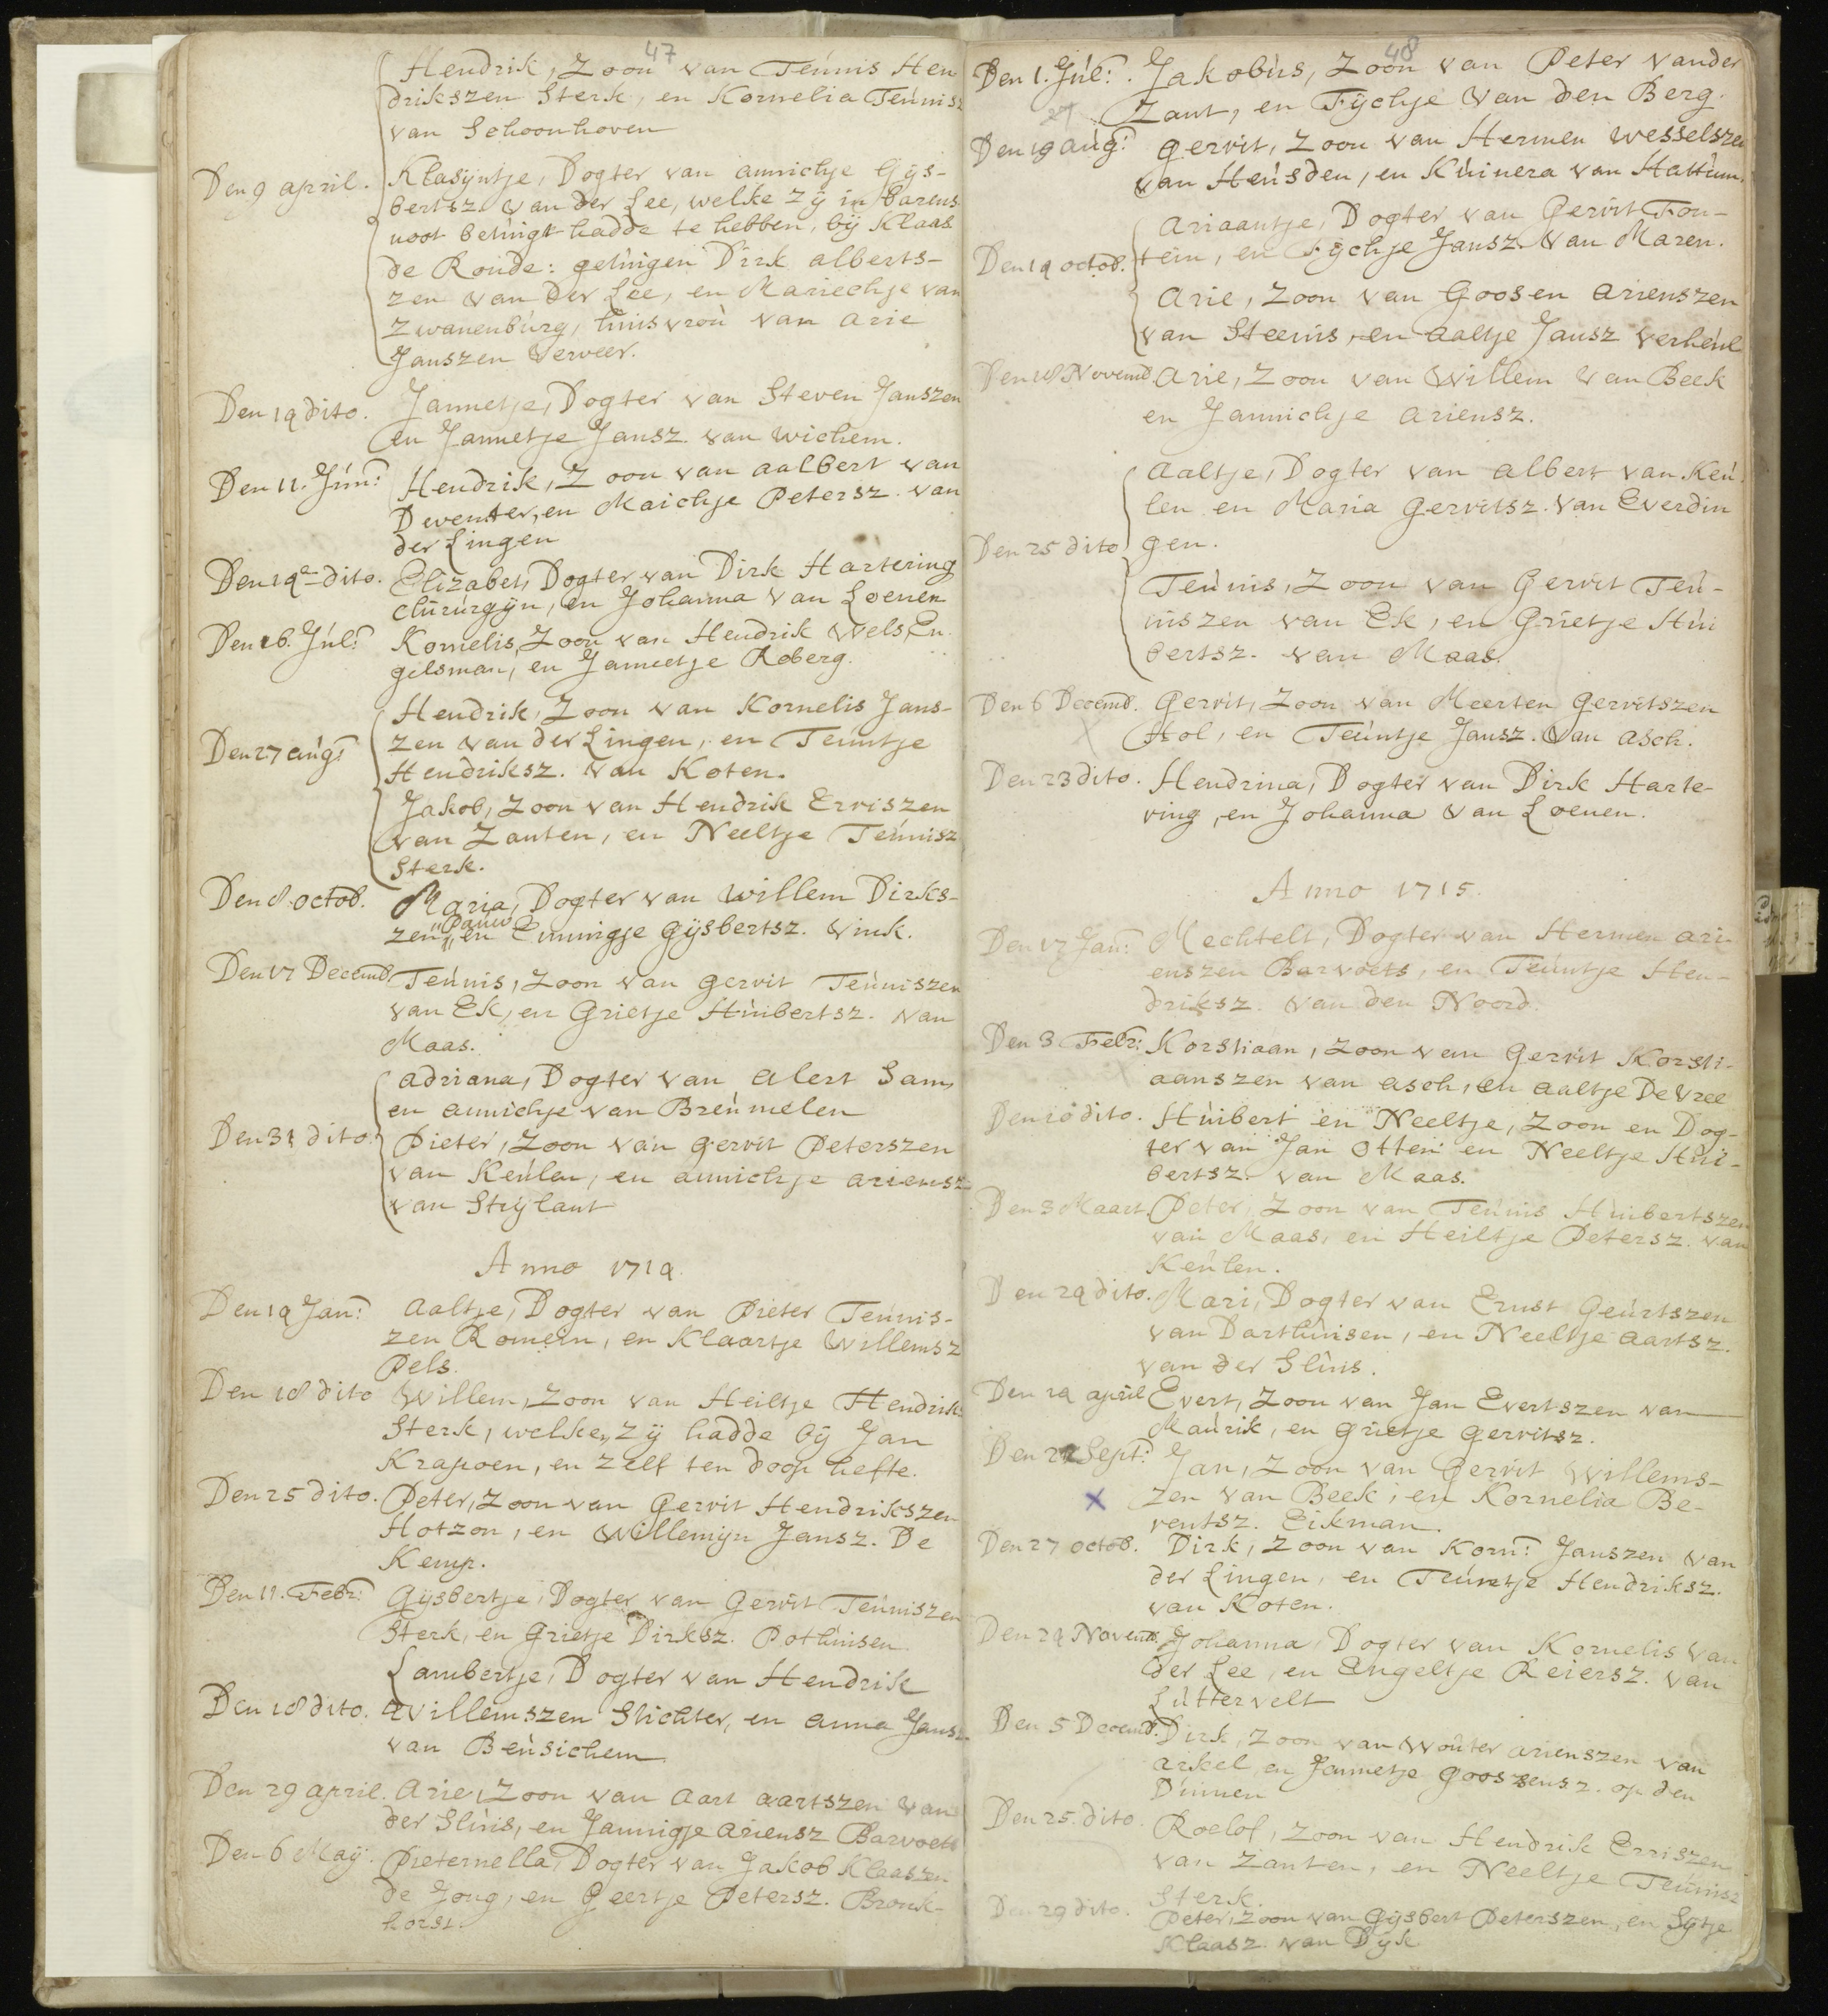 47
Hendrik, Zoon van Teúnis Hen
drikszen Sterk, en Kornelia Teúnisz
van Schoonhoven
Den 9 april. Klasijntje, Dogter van annichje Gijs-
bertsz. van der Lee, welke zij in barens
noot betuigt hadde te hebben, bij Klaas
de Ronde: getuigen Dirk alberts-
zen van der Lee, en Mariechje van
Zwanenbúrg, huisvroù van arie
Janszen Verweer.
Den 19 dito. Jannetje, Dogter van Steven Janszen
en Jannetje Jansz. van Wichem.
Den 11. Jún: Hendrik, Zoon van aalbert van
Deventer, en Maichje Petersz. van
der Lingen
Den 19e dito. Elizabet, Dogter van Dirk Hartering
chirurgijn, en Johanna van Loenen
Den 16. Júl: Kornelis, Zoon van Hendrik Wels En
gelsman, en Jannetje Roberg.
Hendrik, Zoon van Kornelis Jans-
Den 27 aúg: zen van der Lingen, en Teúntje
Hendriksz. van Koten.
Jakob, Zoon van Hendrik Erriszen
van Zanten, en Neeltje Teúnisz
Sterk.
Den 8 octob. Maria, Dogter van Willem Dirks-
zen Paúw en Ennigje Gijsbertsz. Vink.
Den 17 Decemb. Teúnis, Zoon van Gerrit Teúniszen
van Ek, en Grietje Húibertsz. van
Maas.
adriana, Dogter van alert Sam,
en annichje van Breúmelen
Den 31 dito. Pieter, Zoon van Gerrit Peterszen
van Keúlen, en annichje ariensz
van Strijlant
Anno 1714.
Den 14 Jan: aaltje, Dogter van Pieter Teúnis-
zen Romein, en Klaartje Willemsz
Pels.
Den 18 dito Willem, Zoon van Heiltje Hendrik
Sterk, welken zij hadde bij Jan
Krapoen, en zelf ten doop hefte.
Den 25 dito. Peter, Zoon van Gerrit Hendrikszen
Hotzon, en Willemijn Jansz. De
Kemp.
Den 11. Febr: Gijsbertje, Dogter van Gerrit Teúniszen
Sterk, en Grietje Dirksz. Pothúisen
Lambertje, Dogter van Hendrik
Den 18 dito. Willemszen Slichter, en anna Jansz
van Beúsichem
Den 29 april. Arie, Zoon van Aart aartszen van
der Slúis, en Jannigje ariensz Barvoets
Den 6 Maij. Pieternella, Dogter van Jakob Klaaszen
de Jong, en Geertje Petersz. Bronk-
horst.
48
Den 1. Júl: Jakobús, Zoon van Peter vander
Zant, en Fijchje van den Berg.
Den 19 aúg: Gerrit, Zoon van Hermen Wesselszen
van Heúsden, en Kúinera van Hattúm.
Ariaantje, Dogter van Gerrit Fon-
Den 14 octob. tein, en Fijchje Jansz. van Maren.
Arie, Zoon van Goosen Arienszen
van Steenis, en aaltje Jansz Verheúl
Den 18 Novemb. Arie, Zoon van Willem van Beek
en Jannichje ariensz.
aaltje, Dogter van albert van Keú
len en Maria Gerritsz. van Everdin
Den 25 dito gen.
Teúnis, Zoon van Gerrit Teú-
niszen van Ek, en Grietje Húi
bertsz. van Maas.
Den 6 Decemb. Gerrit, Zoon van Meerten Gerritszen
Hol, en Teúntje Jansz. van Asch.
Den 23 dito. Hendrina, Dogter van Dirk Harte-
ring, en Johanna van Loenen.
Anno 1715.
Den 17 Jan: Mechtelt, Dogter van Hermen Ari-
enszen Barvoets, en Teúntje Hen-
driksz. van den Noord.
Den 3 Febr: Korstiaan, Zoon van Gerrit Korsti-
aanszen van Asch, en aaltje De Vree
Den 10 dito. Húibert en Neeltje, Zoon en Dog-
ter van Jan Otten en Neeltje Húi-
bertsz. van Maas.
Den 3 Maart. Peter, Zoon van Teúnis Húibertszen
van Maas, en Heiltje Petersz. van
Keúlen.
Den 24 dito. Mari, Dogter van Ernst Geúrtszen
van Darthúisen, en Neeltje aartsz.
van der Slúis.
Den 14 april Evert, Zoon van Jan Evertszen van
Maúrik, en Grietje Gerritsz.
Den 22 Sept: Jan, Zoon van Gerrit Willems-
x zen van Beek, en Kornelia Be-
rentsz. Eikman.
Den 27 octob. Dirk, Zoon van Korn: Janszen van
der Lingen, en Teúntje Hendriksz.
van Koten.
Den 24 Novemb. Johanna, Dogter van Kornelis van
der Lee, en Engeltje Reiersz. van
Lúttervelt
Den 5 Decemb. Dirk, Zoon van Woúter arienszen van
arkel, en Jannetje Gooszensz. op den
Dúinen
Den 25. dito. Roelof, Zoon van Hendrik Erriszen
van Zanten, en Neeltje Teúnisz
Sterk.
Den 29 dito. Peter, Zoon van Gijsbert Peterszen, en Sijtje
Klaasz. van Dijk